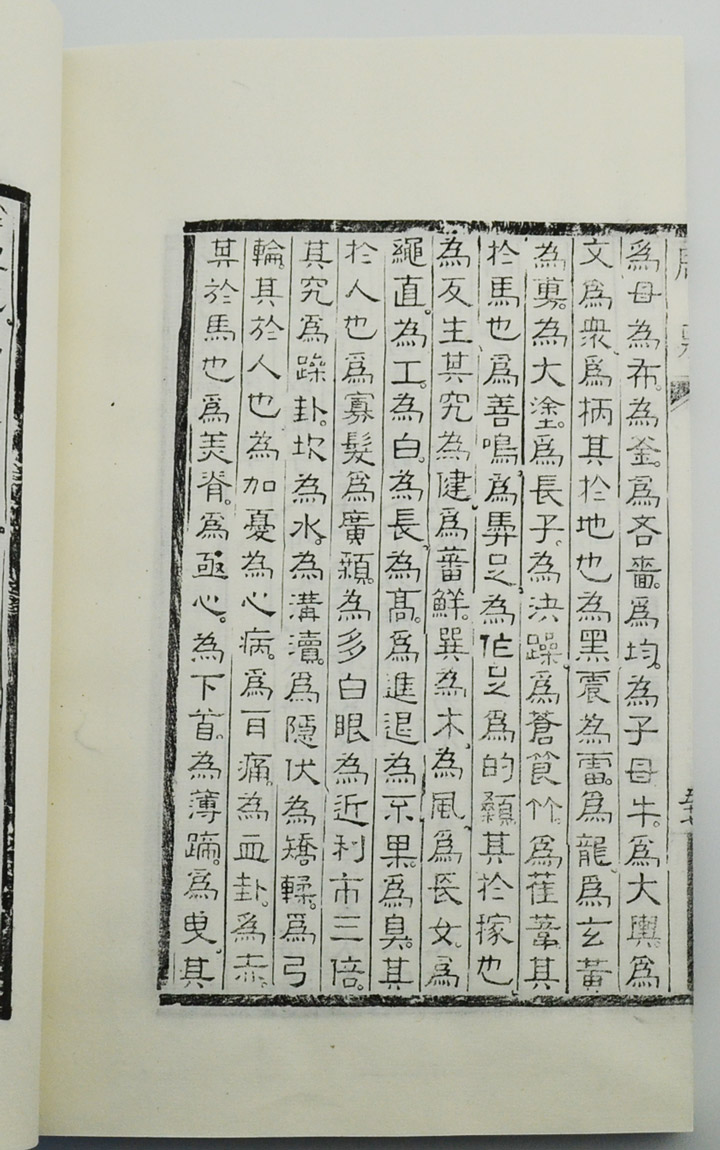 爲母為布。為釜。爲吝嗇。爲均。為子母牛。爲大輿。爲
文爲衆。爲柄其扵地也為黑震為雷。爲龍。爲玄黃
為旉。為大塗。爲長子。為決躁。爲蒼筤竹。爲萑葦其
扵馬也爲善鳴。爲馵足。為作足爲的顙其扵稼也
為反生其究為健。爲蕃鮮。巽為木。為風。爲長女。爲
繩直。為工。為白。為長。為高。爲進退為不果。爲臭。其
扵人也爲寡髮爲廣顙。為多白眼為近利市三倍。
其究爲躁卦。坎為水。為溝瀆。爲隱伏為矯輮。爲弓
輪。其扵人也為加憂為心病。爲耳痛。為血卦。爲赤。
其扵馬也爲美脊。爲亟心。為下首。為薄蹄。爲曳。其